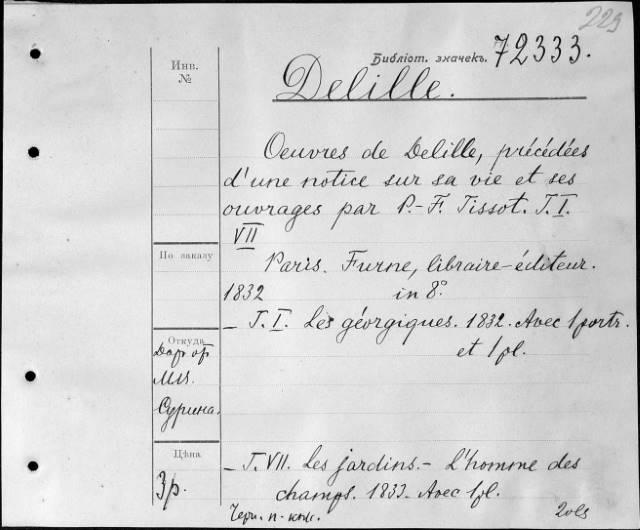 229
Библіот. значекъ. 72333.
Инв.
№
Delille.
Oeuvres de Delille, précédées
d'une notice sur sa vie et ses
ouvrages par P.-F. Tissot. T.I.
VII
По заказу
Paris. Furne, libraire-éditeur.
1832 in 8°.
— T.I. Les géorgiques. 1832. Avec 1 portr.
et 1 pl.
Откуда
Дар от
Сурина.
Цѣна
3 р.
— T.VII. Les jardins.- L'homme des
champs. 1833. Avec 1 pl.
2 vls